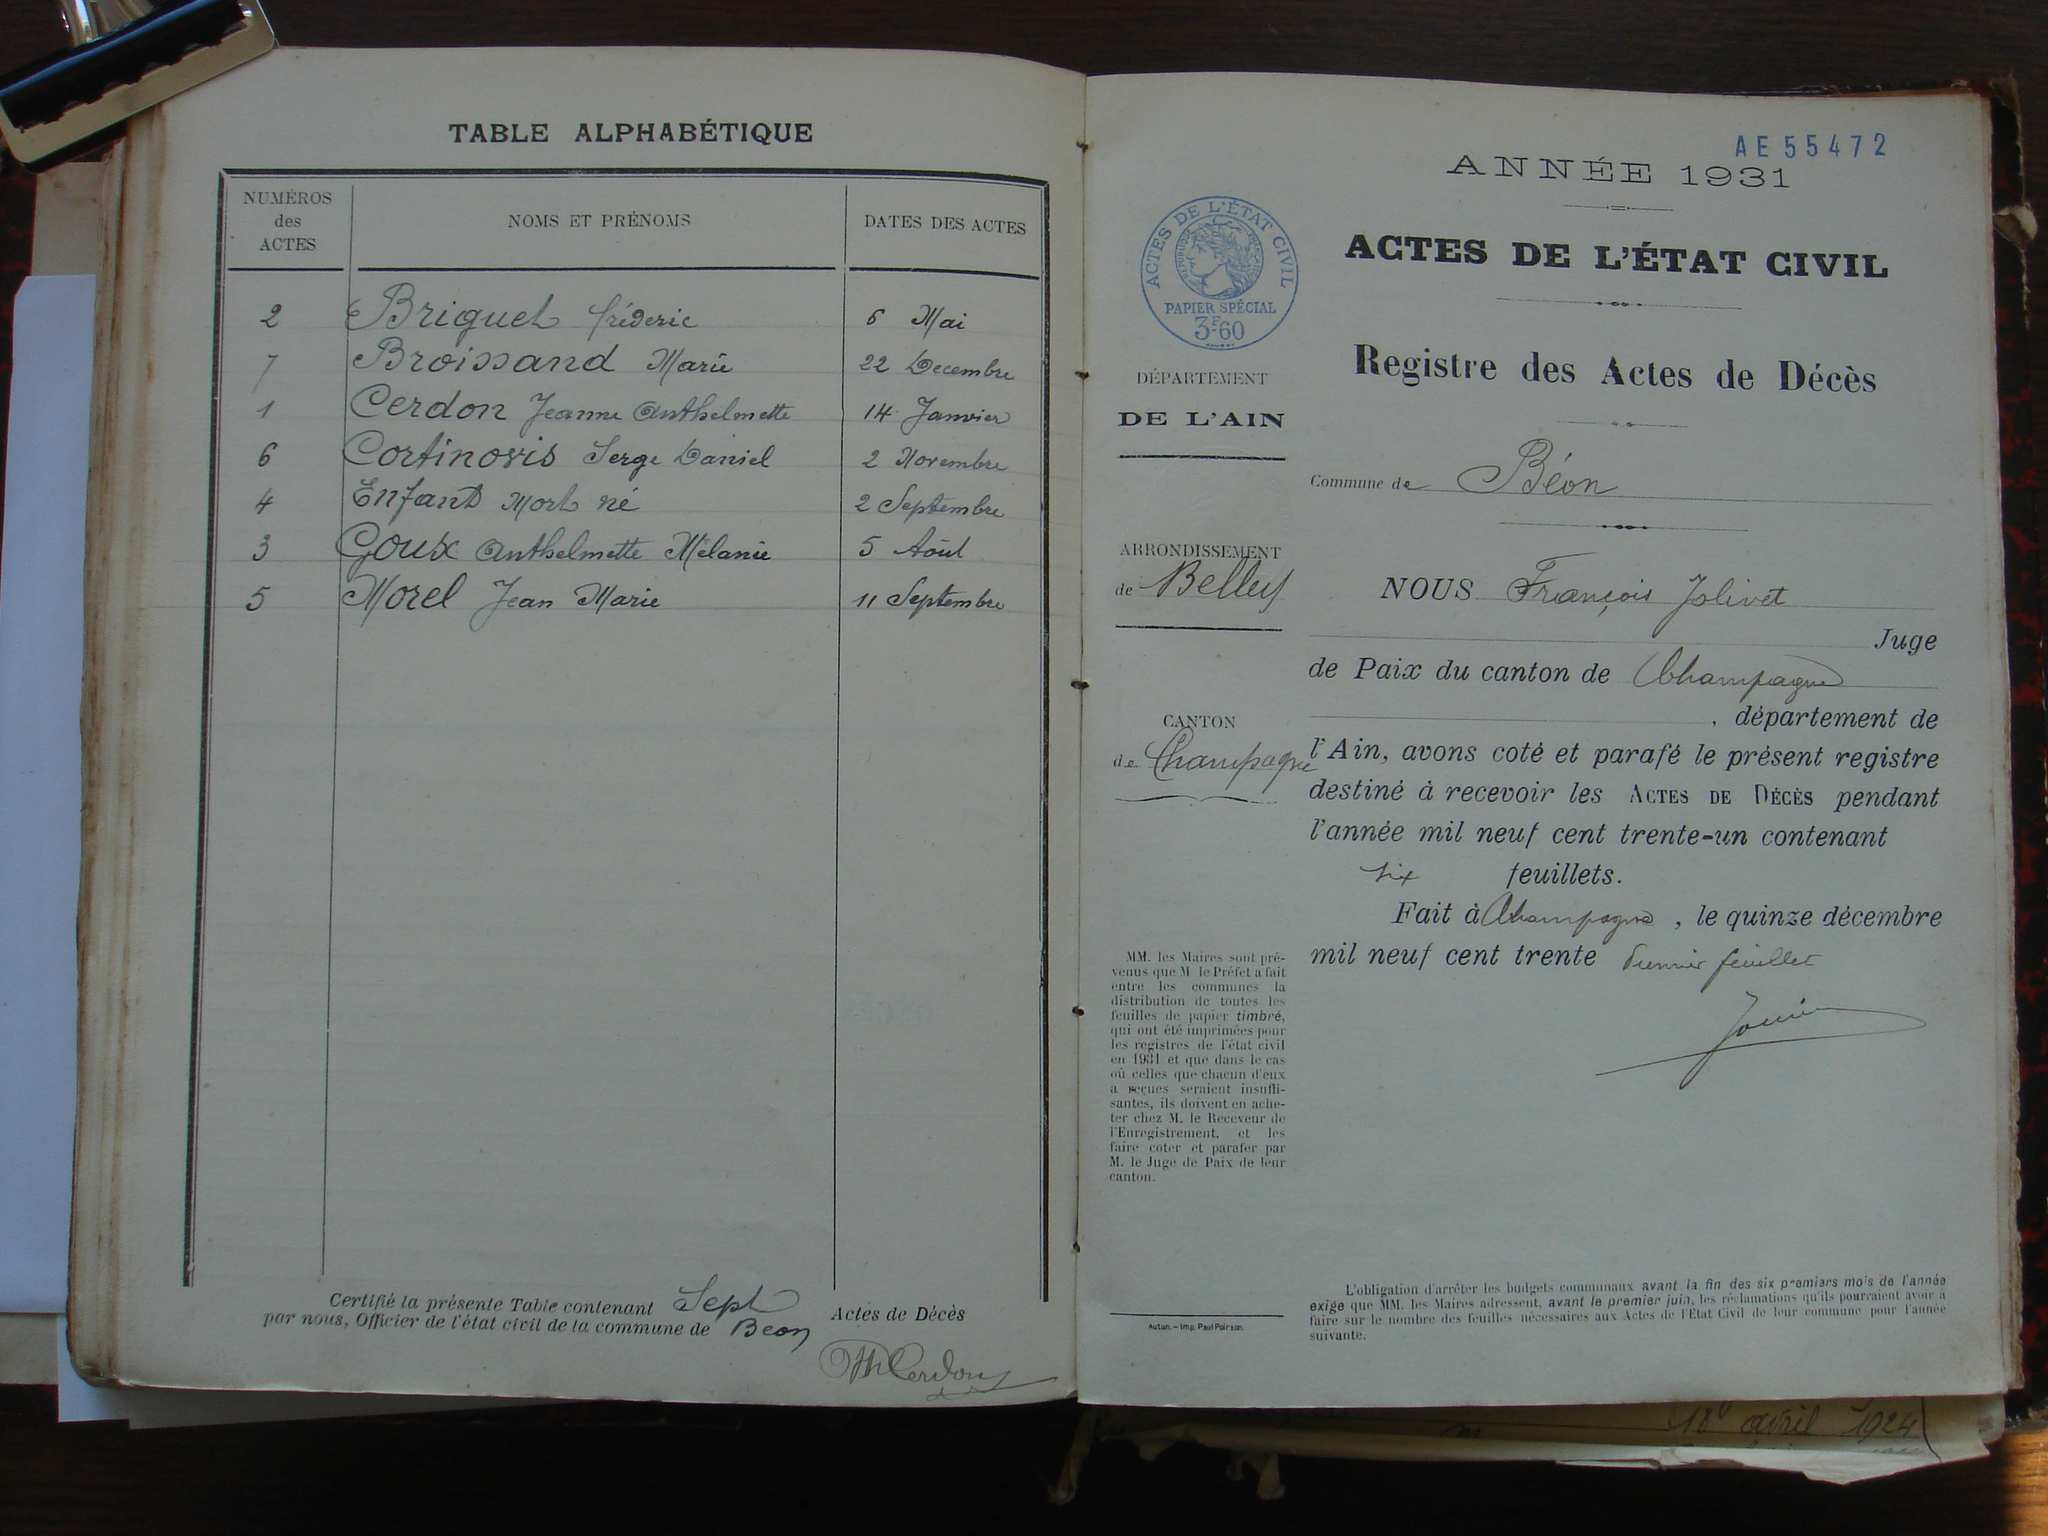 TABLE ALPHABÉTIQUE
NUMÉROS des ACTES
NOMS ET PRÉNOMS
DATES DES ACTES
2 Briquet fréderic 6 Mai
7 Broissand Marie 22 Decembre
1 Cerdon Jeanne Anthelmette 14 Janvier
6 Cortinovis Serge Daniel 2 Novembre
4 Enfant Mort né 2 Septembre
3 Goux Anthelmette Mélanie 5 Aôut
5 Morel Jean Marie 11 Septembre
Certifié la présente Table contenant Sept Actes de Décès
par nous, Officier de l'état civil de la commune de Béon
Cerdon
AE55472
ANNÉE 1931
ACTES DE L'ÉTAT CIVIL
Registre des Actes de Décès
Commune de Béon
ACTES DE L'ÉTAT CIVIL
RÉPUBLIQUE FRANÇAISE
PAPIER SPÉCIAL
3F60
DÉPARTEMENT
DE L'AIN
ARRONDISSEMENT
de Belley
CANTON
de Champagne
MM. les Maires sont pré-
venus que M. le Préfet a fait
entre les communes la
distribution de toutes les
feuilles de papier timbré,
qui ont été imprimées pour
les registres de l'état civil
en 1931 et que dans le cas
où celles que chacun d'eux
a reçues seraient insuffi-
santes, ils doivent en ache-
ter chez M. le Receveur de
l'Enregistrement, et les
faire coter et parafer par
M. le Juge de Paix de leur
canton.
Autun. – Imp. Paul Poirson
NOUS François Jolivet
Juge
de Paix du canton de Champagne
, département de
l'Ain, avons coté et parafé le présent registre
destiné à recevoir les ACTES DE DÉCÈS pendant
l'année mil neuf cent trente-un contenant
six feuillets.
Fait à Champagne, le quinze décembre
mil neuf cent trente Premier feuillet
L'obligation d'arrêter les budgets communaux avant la fin des six premiers mois de l'année
exige que MM. les Maires adressent, avant le premier juin, les réclamations qu'ils pourraient avoir à
faire sur le nombre des feuilles nécessaires aux Actes de l'Etat Civil de leur commune pour l'année
suivante.
avril 1924